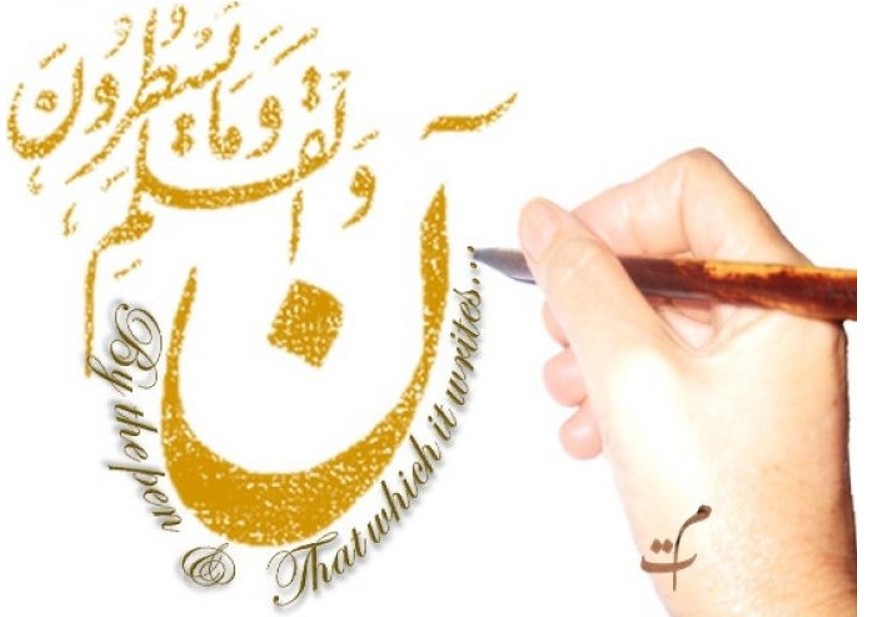 نٓ وَالْقَلَمِ وَمَا يَسْطُرُونَ
By the pen & That which it writes...